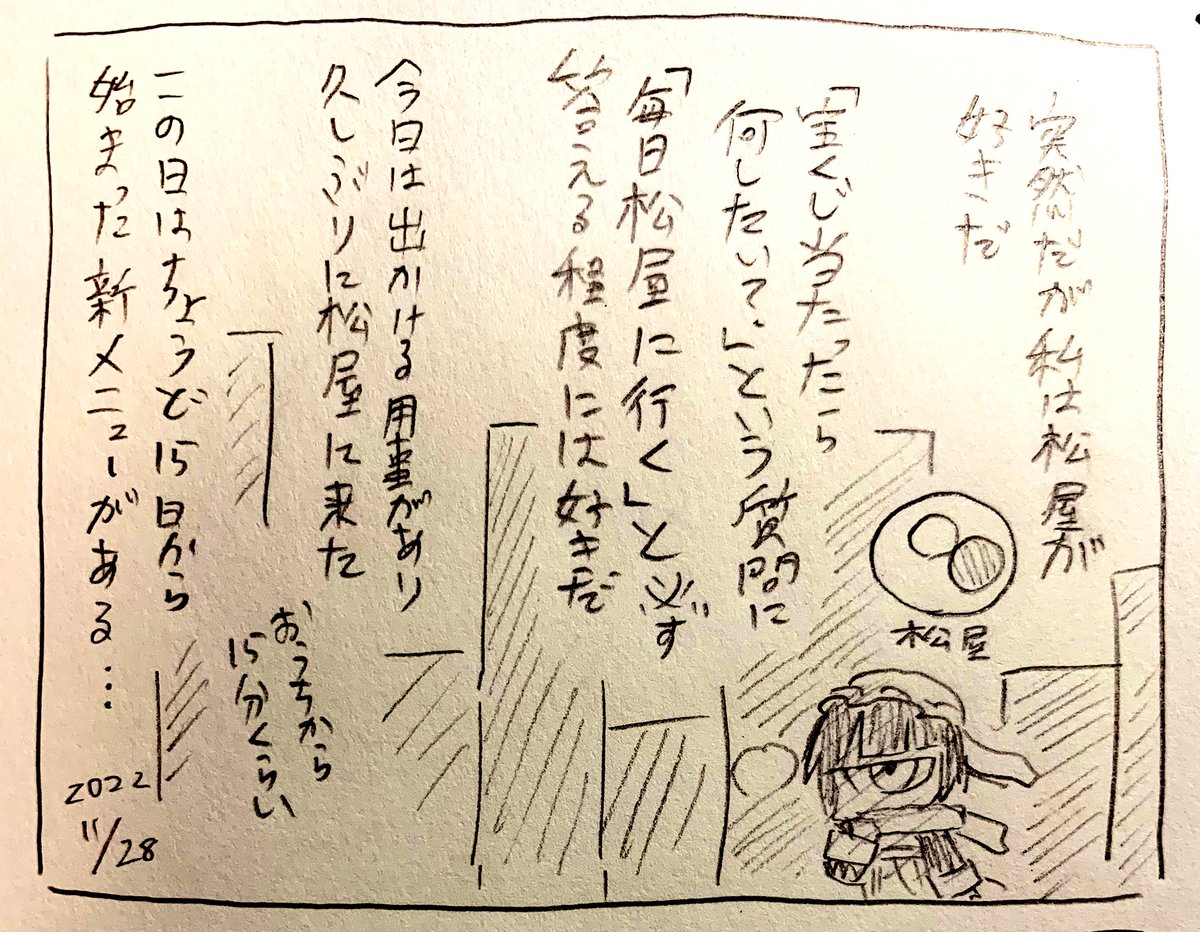 突然だが私は松屋が
好きだ
「宝くじ当たったら
何したいて」という質問に
「毎日松屋に行く」と必ず
答える程度には好きだ
今日は出かける用事があり
久しぶりに松屋に来た
この日はちょうど15日から
始まった新メニューがある…
松屋
おうちから
15分くらい
2022
11/28